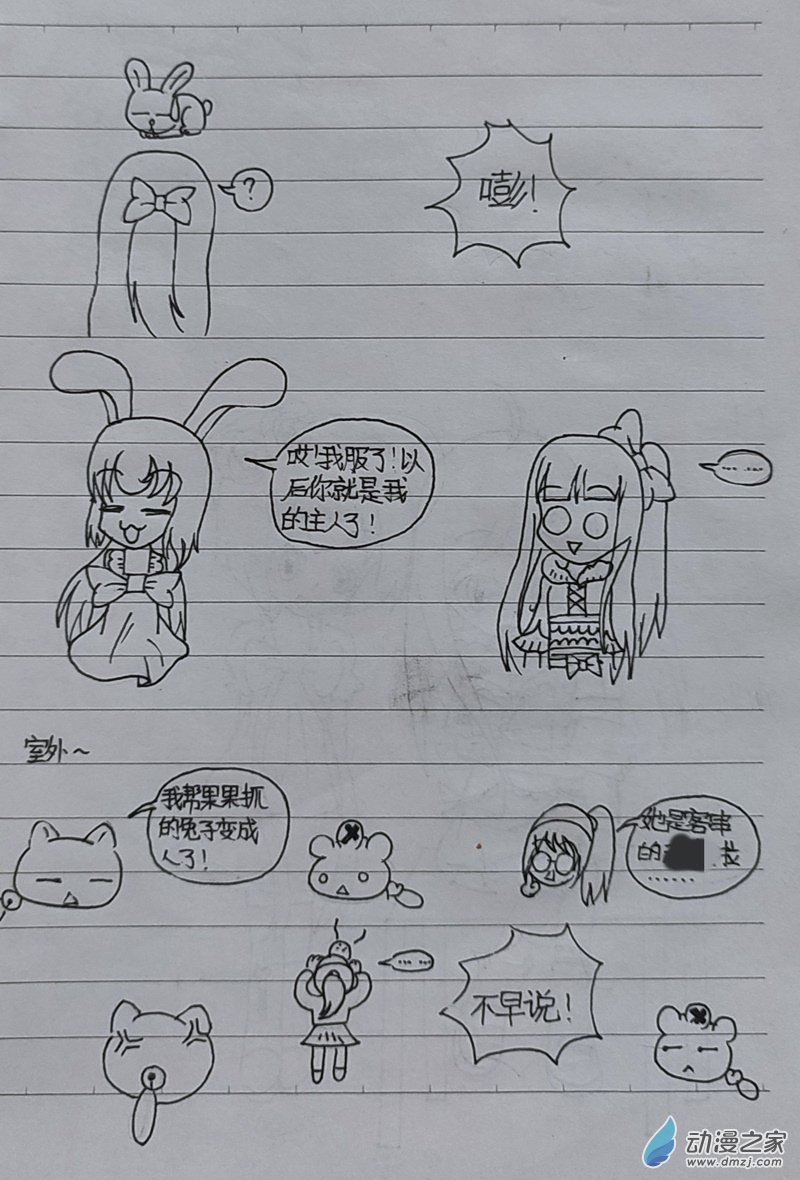 ?
嘭!
哎!我服了!以
后你就是我
的主人了!
……
室外~
我帮果果抓
的兔子变成
人了!
她是客串
的
我
……
……
不早说!
动漫之家
www.dmzj.com